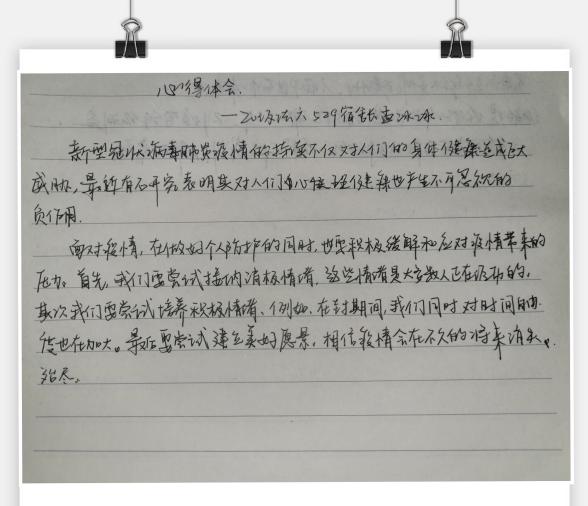 心得体会.
——20级法六 529宿舍长孟冰冰.
新型冠状病毒肺炎疫情的持续不仅对人们的身体健康造成巨大
威胁,最近有研究表明其对人们的心理健康也产生不可忽视的
负作用.
面对疫情,在做好个人防护的同时,也要积极缓解和应对疫情带来的
压力。首先,我们要尝试接纳消极情绪,这些情绪是大多数人正在经历的,
其次我们要尝试培养积极情绪、例如,在封期间,我们同时对时间的
度也在加大。最后要尝试建立美好愿景,相信疫情会在不久的将来消失
殆尽。